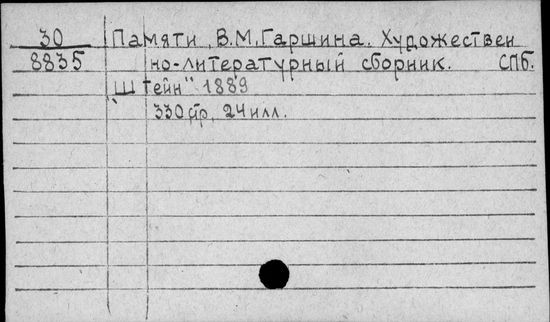 30 Памяти В.М.Гаршина. Художествен
8835 но-литературный сборник. СПб.
"Штейн" 1889
330 стр, 24 илл.